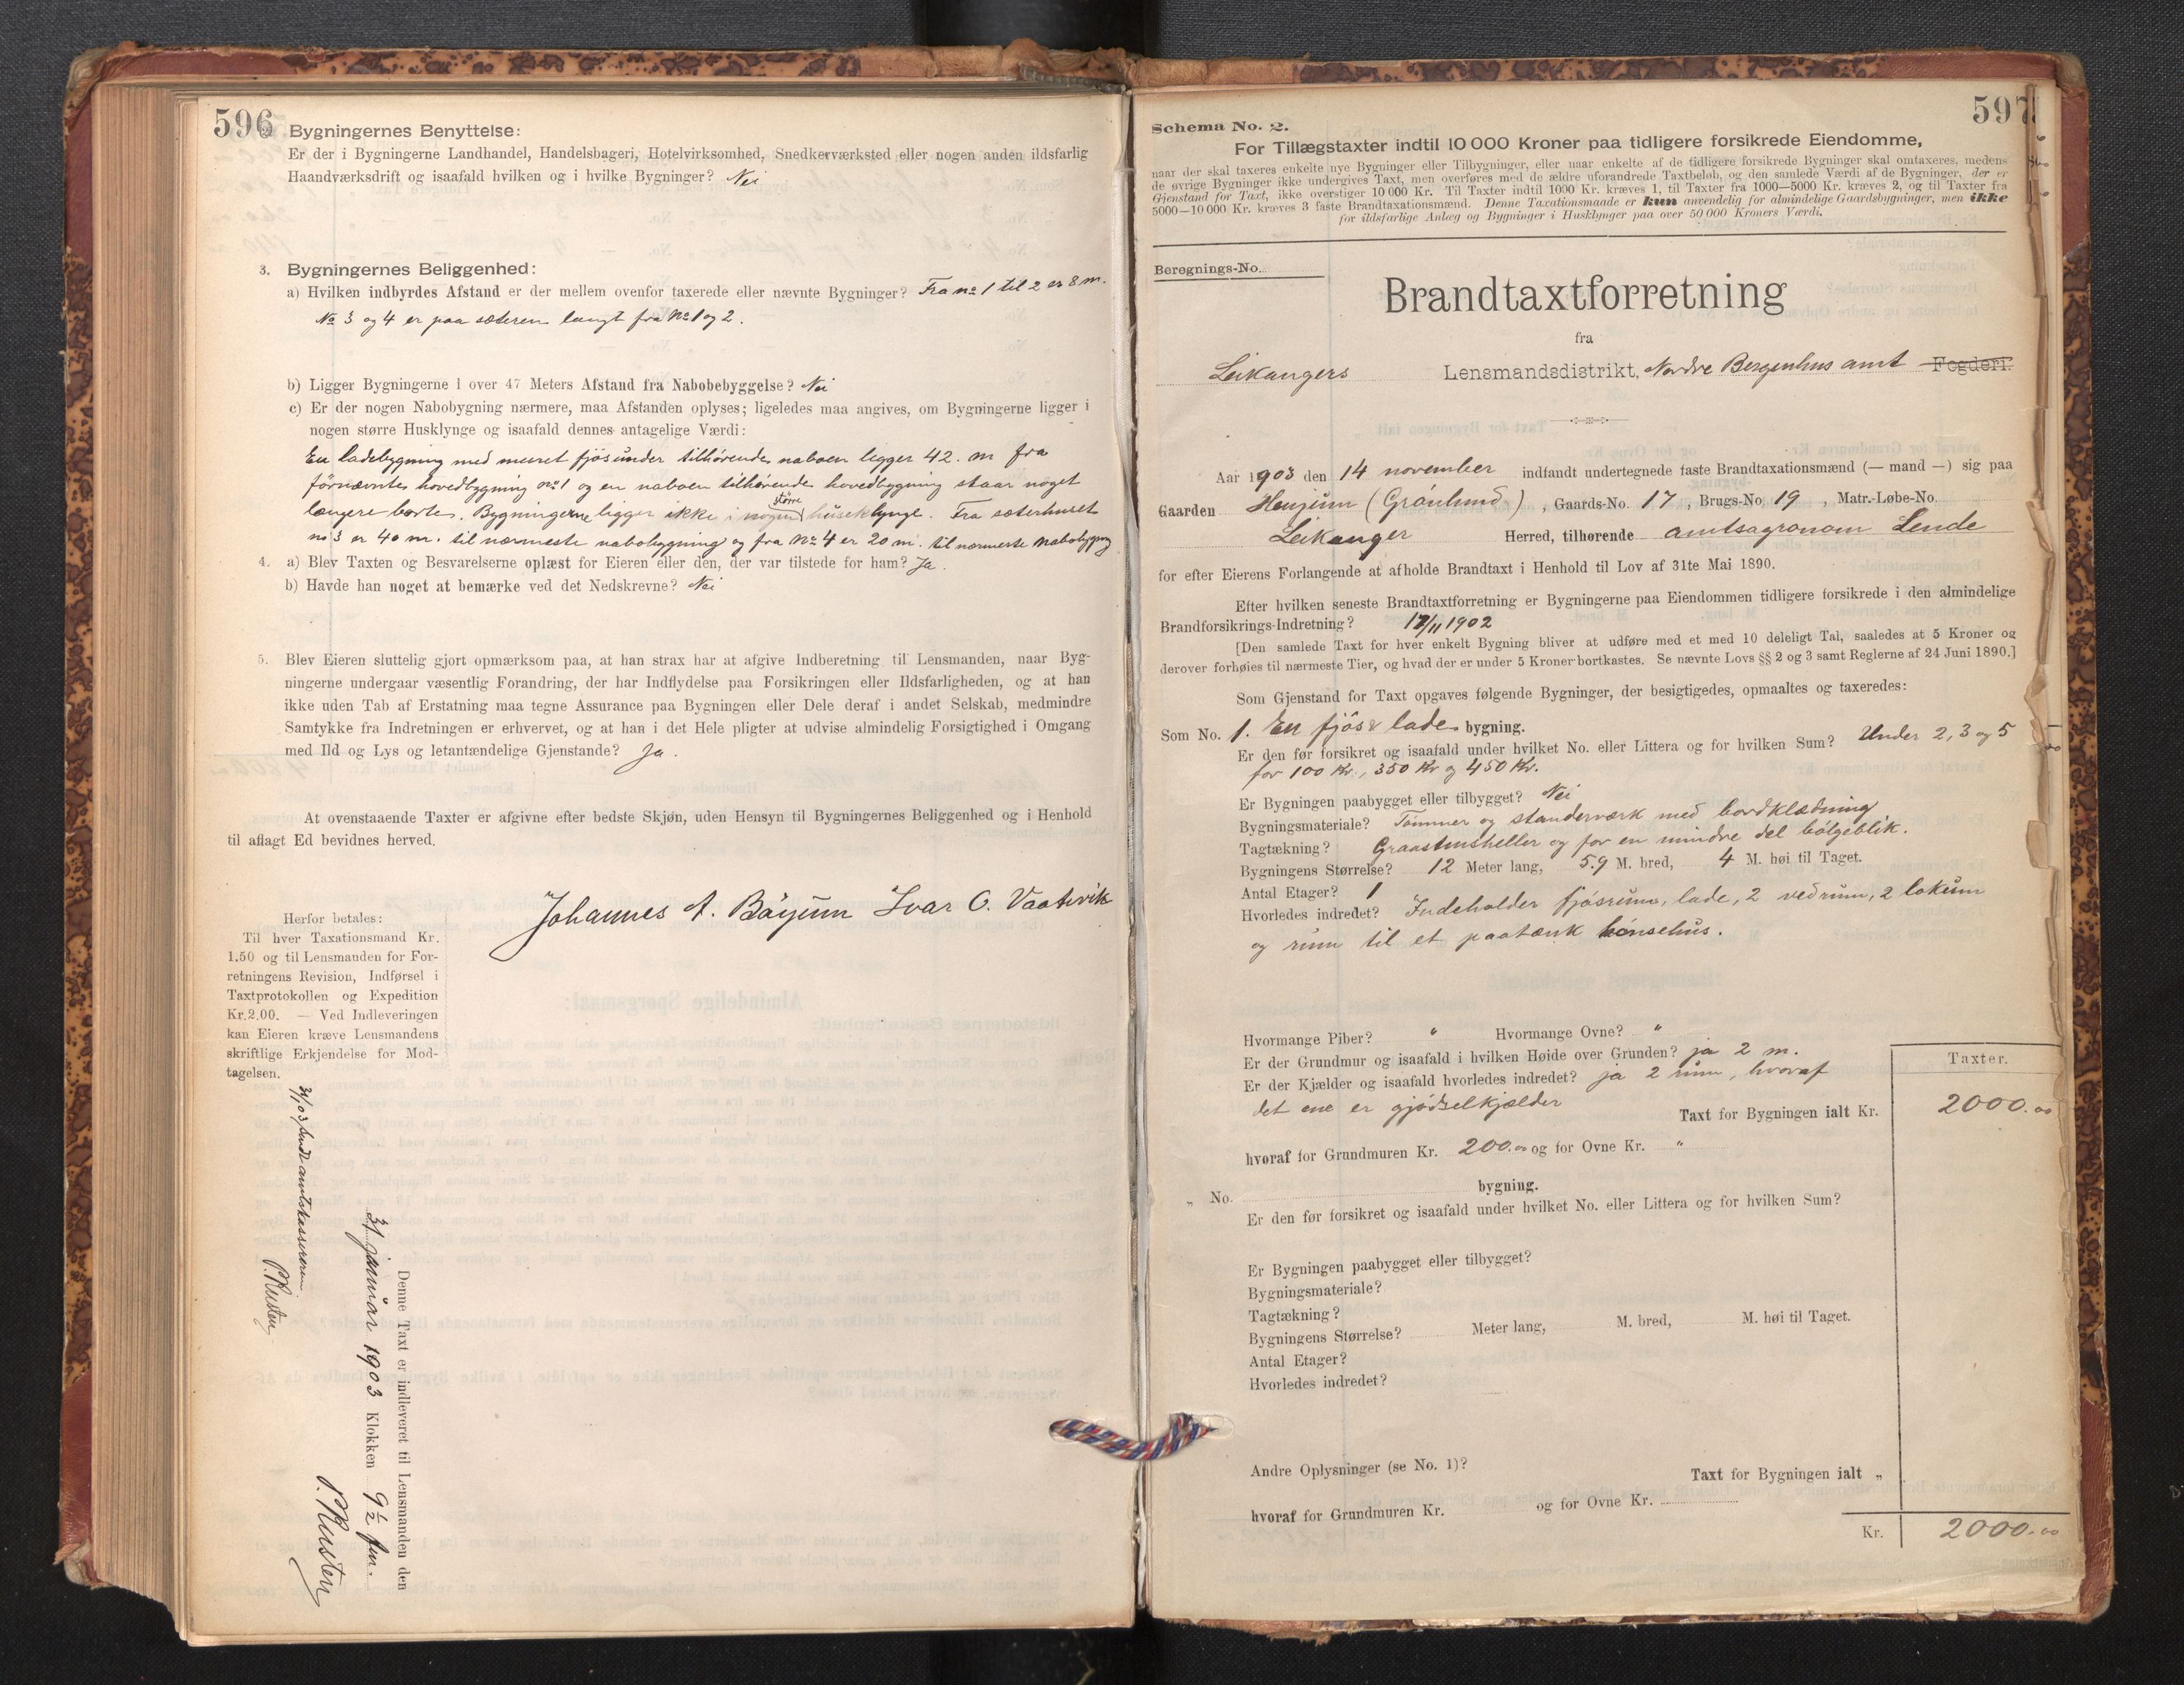 596
2. Bygningernes Benyttelse:
Er der i Bygningerne Landhandel, Handelsbageri, Hotelvirksomhed, Snedkerværksted eller nogen anden ildsfarlig
Haandværksdrift og isaafald hvilken og i hvilke Bygninger? Nei
3. Bygningernes Beliggenhed:
a) Hvilken indbyrdes Afstand er der mellem ovenfor taxerede eller nævnte Bygninger? Fra no 1 til 2 er 8 m.
No 3 og 4 er paa sæteren langt fra No 1 og 2.
b) Ligger Bygningerne i over 47 Meters Afstand fra Nabobebyggelse? Nei
c) Er der nogen Nabobygning nærmere, maa Afstanden oplyses; ligeledes maa angives, om Bygningerne ligger i
nogen større Husklynge og isaafald dennes antagelige Værdi:
En ladebygning med muret fjøs under tilhørende naboen ligger 42. m fra
førnævnte hovedbygning no 1 og en naboen tilhørende hovedbygning staar noget
længere borte. Bygningerne ligger ikke i nogen større huseklynge. Fra sæterhuset
no 3 er 40 m. til nærmeste nabobygning og fra No 4 er 20 m. til nærmeste nabobygning
4. a) Blev Taxten og Besvarelserne oplæst for Eieren eller den, der var tilstede for ham? Ja.
b) Havde han noget at bemærke ved det Nedskrevne? Nei
5. Blev Eieren sluttelig gjort opmærksom paa, at han strax har at afgive Indberetning til Lensmanden, naar Byg-
ningerne undergaar væsentlig Forandring, der har Indflydelse paa Forsikringen eller Ildsfarligheden, og at han
ikke uden Tab af Erstatning maa tegne Assurance paa Bygningen eller Dele deraf i andet Selskab, medmindre
Samtykke fra Indretningen er erhvervet, og at han i det Hele pligter at udvise almindelig Forsigtighed i Omgang
med Ild og Lys og letantændelige Gjenstande? Ja.
At ovenstaaende Taxter er afgivne efter bedste Skjøn, uden Hensyn til Bygningernes Beliggenhed og i Henhold
til aflagt Ed bevidnes herved.
Johannes A. Bøyum Ivar O.
Herfor betales:
Til hver Taxationsmand Kr.
1.50 og til Lensmanden for For-
retningens Revision, Indførsel i
Taxtprotokollen og Expedition
Kr. 2.00. — Ved Indleveringen
kan Eieren kræve Lensmandens
skriftlige Erkjendelse for Mod-
tagelsen.
Sendt amtskassereren
Denne Taxt er indleveret til Lensmanden den
januar 1903 Klokken 9 ½ fm.
597
Schema No. 2.
For Tillægstaxter indtil 10 000 Kroner paa tidligere forsikrede Eiendomme,
naar der skal taxeres enkelte nye Bygninger eller Tilbygninger, eller naar enkelte af de tidligere forsikrede Bygninger skal omtaxeres, medens
de øvrige Bygninger ikke undergives Taxt, men overføres med de ældre uforandrede Taxtbeløb, og den samlede Værdi af de Bygninger, der er
Gjenstand for Taxt, ikke overstiger 10 000 Kr. Til Taxter indtil 1000 Kr. kræves 1, til Taxter fra 1000—5000 Kr. kræves 2, og til Taxter fra
5000—10 000 Kr. kræves 3 faste Brandtaxationsmænd. Denne Taxationsmaade er kun anvendelig for almindelige Gaardsbygninger, men ikke
for ildsfarlige Anlæg og Bygninger i Husklynger paa over 50 000 Kroners Værdi.
Beregnings-No.
Brandtaxtforretning
fra
Leikangers Lensmandsdistrikt, Nordre Bergenhus amt Fogderi.
Aar 1903 den 14 november indfandt undertegnede faste Brandtaxationsmænd (— mand —) sig paa
Gaarden Henjum (Grønlund), Gaards-No. 17, Brugs-No. 19, Matr.-Løbe-No.
Leikanger Herred, tilhørende amtsagronom Lende
for efter Eierens Forlangende at afholde Brandtaxt i Henhold til Lov af 31te Mai 1890.
Efter hvilken seneste Brandtaxtforretning er Bygningerne paa Eiendommen tidligere forsikrede i den almindelige
Brandforsikrings-Indretning? 17/11 1902
[Den samlede Taxt for hver enkelt Bygning bliver at udføre med et med 10 deleligt Tal, saaledes at 5 Kroner og
derover forhøies til nærmeste Tier, og hvad der er under 5 Kroner bortkastes. Se nævnte Lovs §§ 2 og 3 samt Reglerne af 24 Juni 1890.]
Som Gjenstand for Taxt opgaves følgende Bygninger, der besigtigedes, opmaaltes og taxeredes:
Som No. 1. En fjøs & lade bygning.
Er den før forsikret og isaafald under hvilket No. eller Littera og for hvilken Sum? Under 2, 3 og 5
for 100 Kr., 350 Kr og 450 Kr.
Er Bygningen paabygget eller tilbygget? Nei
Bygningsmateriale? Tømmer og standerværk med bordklædning
Tagtækning? Graastensheller og for en mindre del bølgeblik.
Bygningens Størrelse? 12 Meter lang, 5.9 M. bred, 4 M. høi til Taget.
Antal Etager? 1
Hvorledes indredet? Indeholder fjøsrum, lade, 2 vedrum, 2 lokum
og rum til et paatænk hønsehus.
Hvormange Piber? " Hvormange Ovne? "
Er der Grundmur og isaafald i hvilken Høide over Grunden? ja 2 m.
Er der Kjælder og isaafald hvorledes indredet? ja 2 rum, hvoraf
det ene er gjødselkjælder
Taxter.
Taxt for Bygningen ialt Kr. 2000.00
hvoraf for Grundmuren Kr. 200.00 og for Ovne Kr. "
„ No. bygning.
Er den før forsikret og isaafald under hvilket No. eller Littera og for hvilken Sum?
Er Bygningen paabygget eller tilbygget?
Bygningsmateriale?
Tagtækning?
Bygningens Størrelse? Meter lang, M. bred, M. høi til Taget.
Antal Etager?
Hvorledes indredet?
Andre Oplysninger (se No. 1)?
Taxt for Bygningen ialt „
hvoraf for Grundmuren Kr. og for Ovne Kr.
Kr. 2000.00